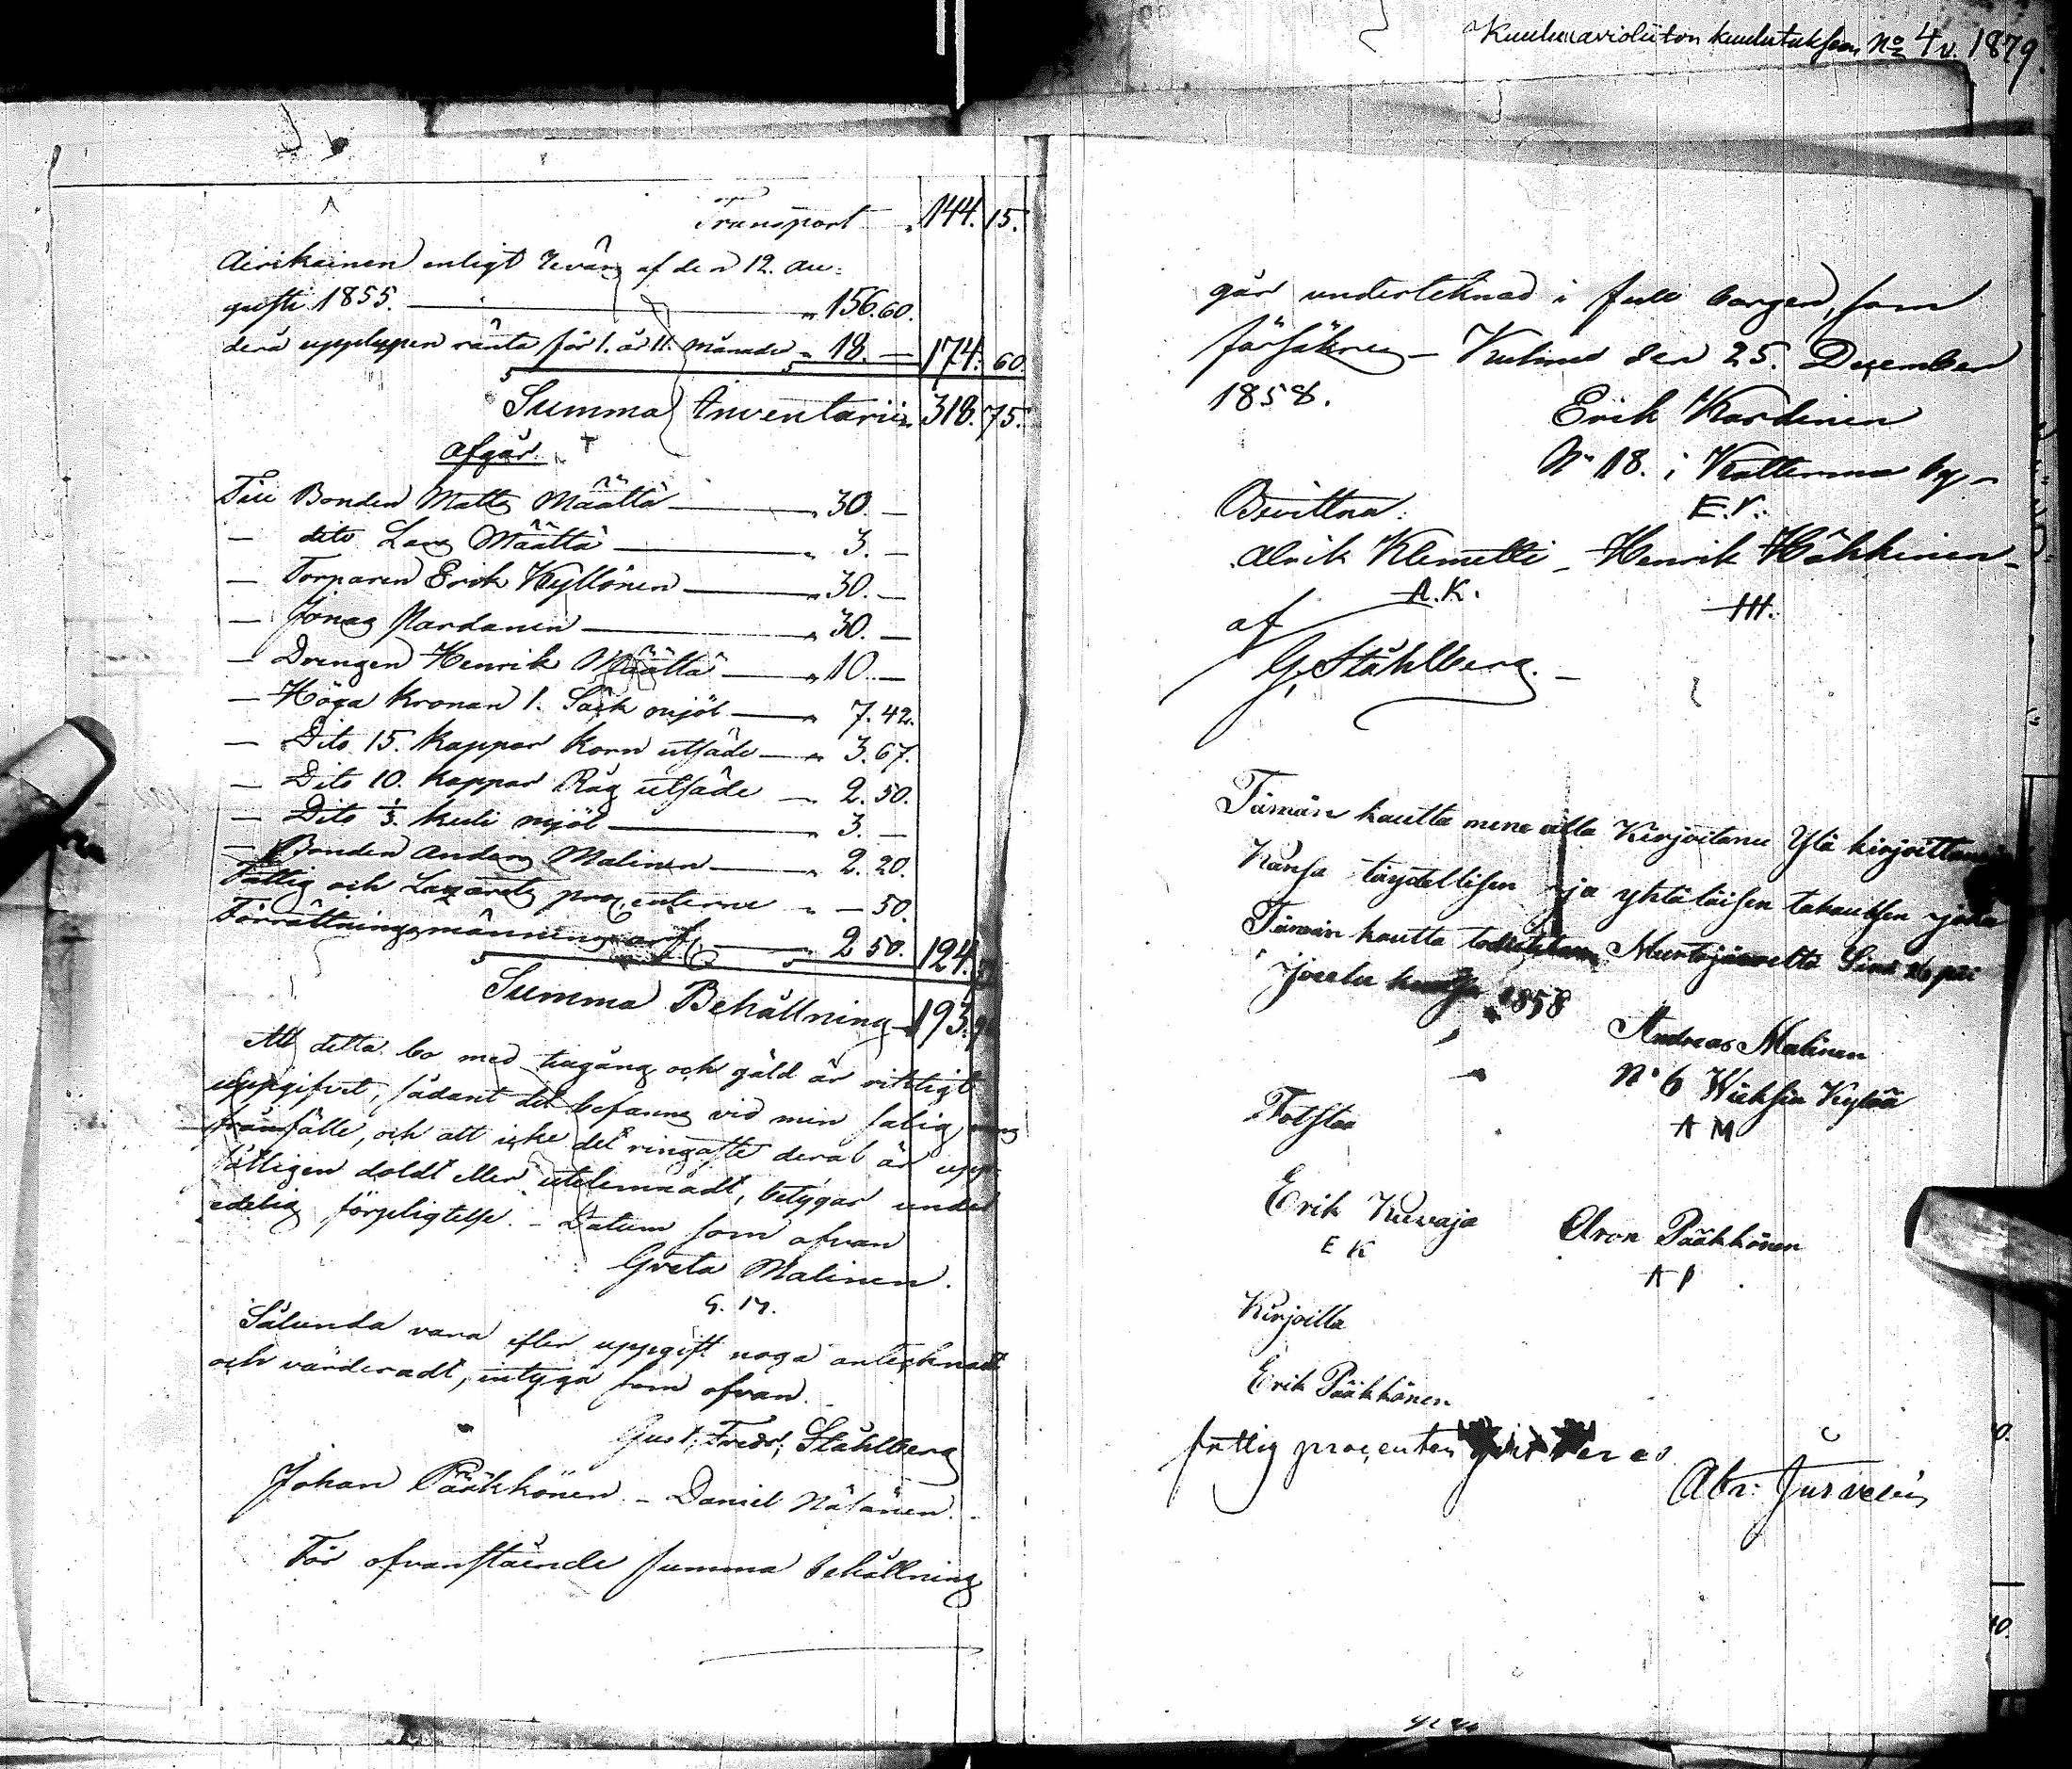 Kuuluu avioliiton kuulutukseen No 4 v. 1879.
Transport " 144. 15.
Airikainen enligt Revers af den 12. Au=
gusti 1855. " 156.60.
derå upplupen ränta för 1. år 11. månader " 18. — 174. 60.
Summa Inventarii " 318. 75.
Afgår
Till Bonden Matts Määttä " 30. —
— dito Lars Määttä " 3. —
— Torparen Erik Kyllönen " 30. —
— Jonas Pardanen " 30. —
— Drengen Henrik Määttä " 10. —
— Höga Kronan 1. Säck mjöl " 7. 42.
— Dito 15. kappar Korn utsäde " 3. 67.
— Dito 10. kappar Råg utsäde " 2. 50.
— Dito 1/3 kuli mjöl " 3. —
— Bonden Anders Malinen " 2. 20.
Fattig och Lazarets procenterne " — 50.
Förrättningsmännernes arf. 2 50. 124.
Summa Behållning " 193.
Att detta bo med tilgång och gäld är riktigt
uppgifvet, sådant det befanns vid min salig mans
frånfälle, och att icke det ringaste deraf är upp-
såtligen doldt eller utelemnadt, betygar under
edelig förpligtelse. – Datum som ofvan
Greta Malinen.
G. M.
Sålunda vara efter uppgift noga antecknadt
och värderadt, intyga som ofvan.
Gust. Fredr. Ståhlberg
Johan Pääkkönen – Daniel Nätänen.
För ofvanstående summa behållning
går undertecknad i full borgen, som
försäkras – Kuhmo den 25. December
1858.
Erik Kardinen
No 18. i Katterma by –
Bevittna: E.K.
Alrik Klemetti – Henrik Häkkinen –
A.K. HH.
af
G. Ståhlberg. –
Tämän kautta mene alla Kirjoitanu Ylä kirjoittanen
Kansa täydellisen ja yhtäläisen takauksen jota
Tämän kautta todistetaan Murtojärveltä Sinä 26 päi
Joulu kuusa 1858
Andreas Malinen
No 6 Wieksin Kylää
A M
Totstaa
Erik Kuvaja Aron Pääkkönen
E K A P
Kirjoitta
Erik Pääkkönen
fattig procenten
Abr: Jusvelius